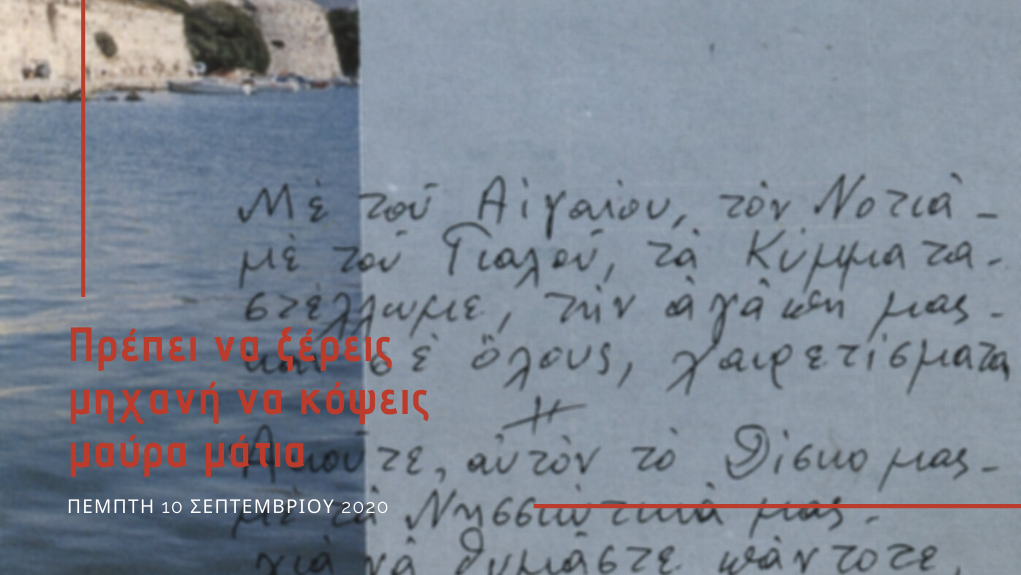 Μὲ τοῦ Αἰγαίου, τὸν Νοτιὰ -
μὲ τοῦ Γιαλοῦ, τὰ Κύμματα -
στέλλωμε, τὴν ἀγάπη μας -
καὶ σ ἐ ὅλους, χαιρετίσματα
Ἀκοῦτε, αὐτὸν τὸ Δίσκο μας -
μὲ τὰ Νησσιώτικα μας -
γιὰ νὰ θυμᾶστε πάντοτε,
Πρέπει να ξέρεις
μηχανή να κόψεις
μαύρα μάτια
ΠΕΜΠΤΗ 10 ΣΕΠΤΕΜΒΡΙΟΥ 2020